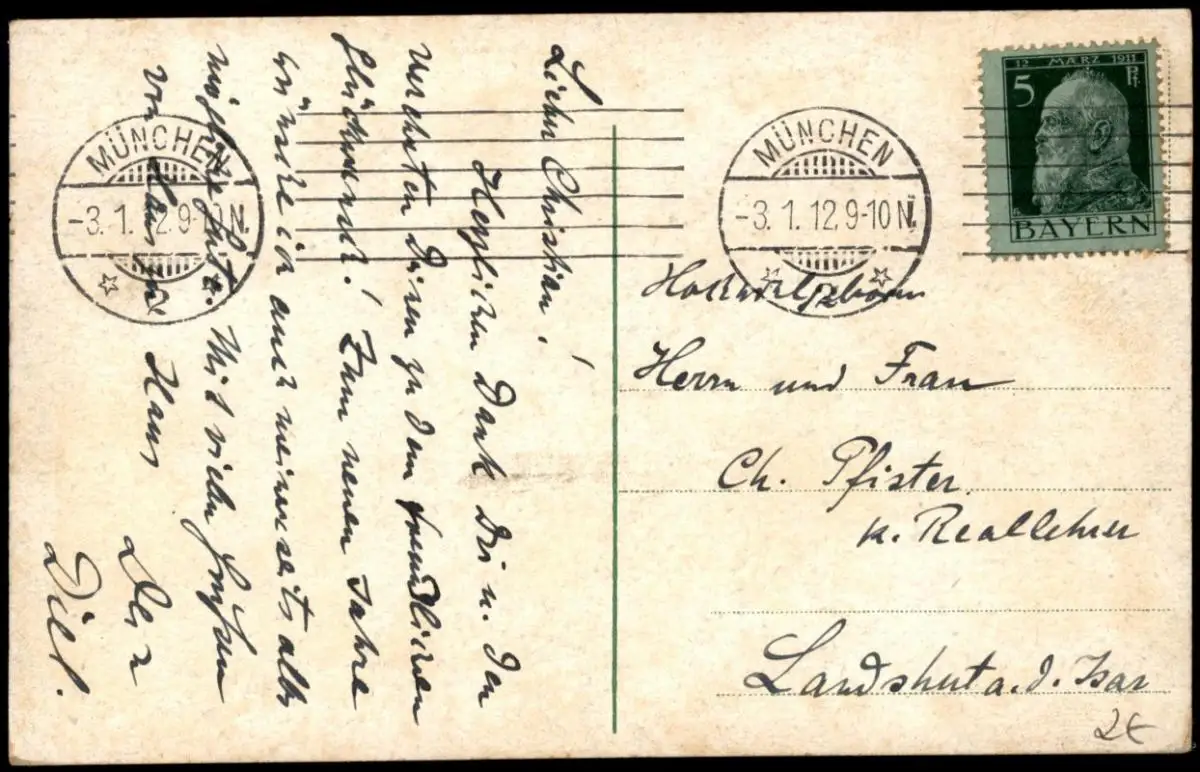 Lieber Christian!
Herzlichen Dank Dir u. den
werten Deinen zu dem freundlichen
Glückwunsch! Zum neuen Jahre
wünsche ich auch meinerseits alles
mögliche Gute. Mit vielen Grüßen
von Haus zu Haus
Dein
MÜNCHEN
-3.1.12.9- N.
MÜNCHEN
-3.1.12.9-10 N.
12 MÄRZ 1911
5 Pf.
BAYERN
Herrn und Frau
Ch. Pfister
k. Reallehrer
Landshut a. d. Isar
2€